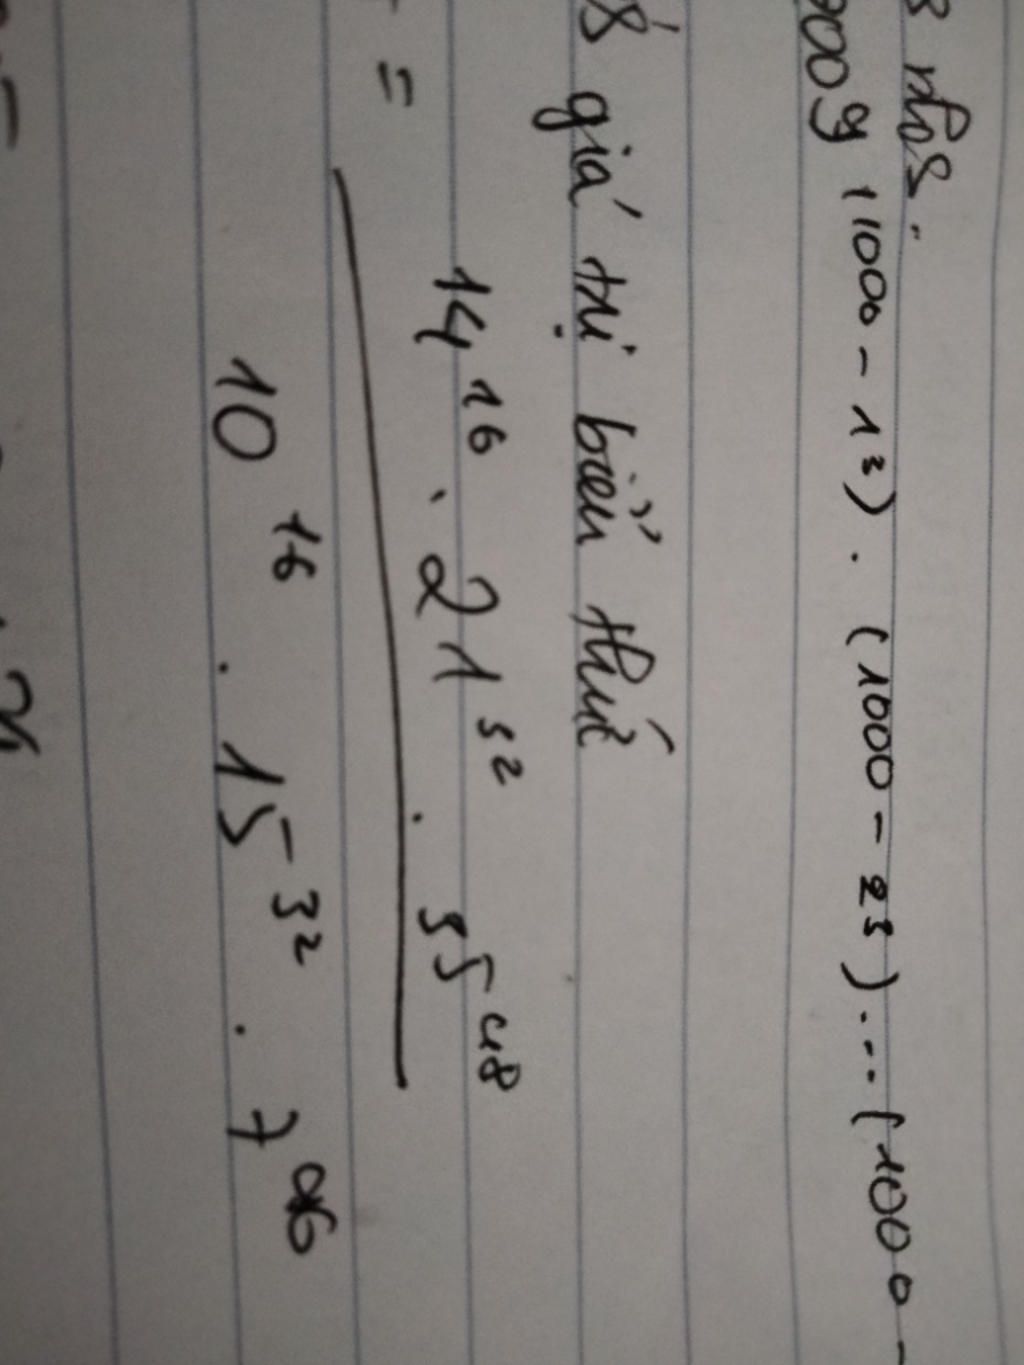 3 nhỏ.
2009 (1000 - 1³) . (1000 - 2³) ... (1000 -
8 giá trị biểu thức
= 14¹⁶ . 21³² . 35⁴⁸
10¹⁶ . 15³² . 7⁹⁶